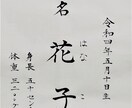 令和四年五月十日生
名 花子
はな こ
身長 五十セン
体重 三二〇